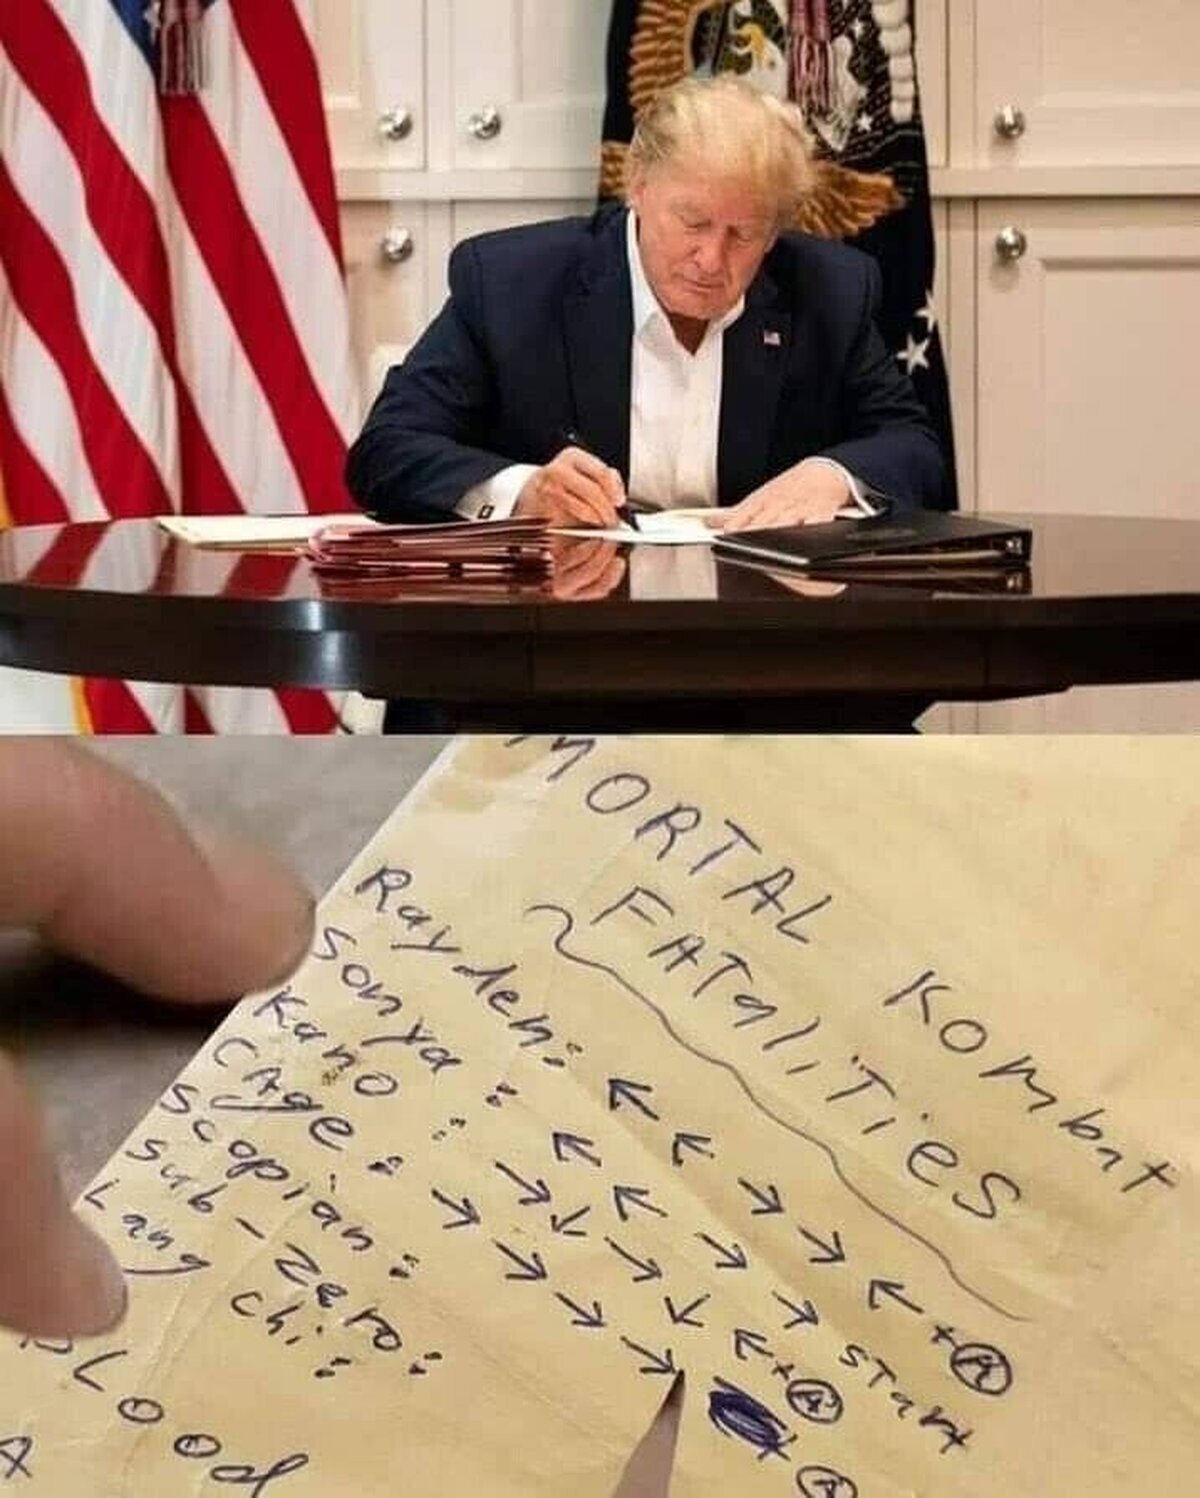 MORTAL Kombat
FATaliTies
Rayden: ← ← → → ← + A
Sonya: ← ← → → START
Kano: → ↙ → ↙ ← + A
CAge: → → → → + A
Scopian:
Sub-Zero:
Lang Chi:
BLood
A